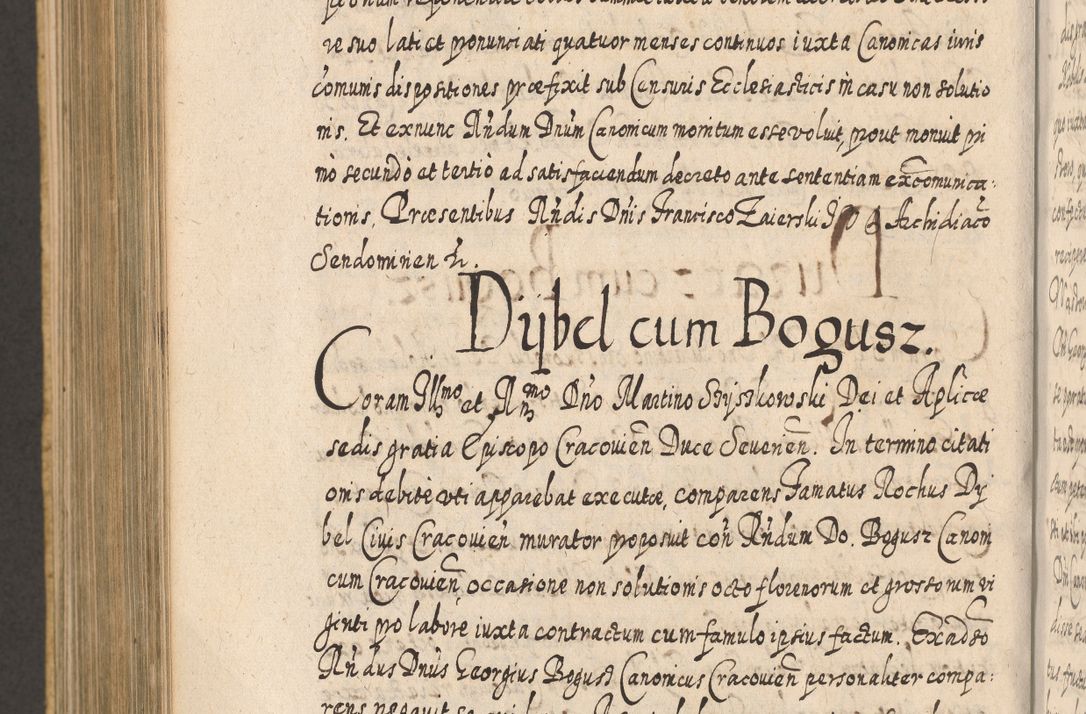 re suo lati et pronunciati quatuor menses continuos iuxta Canonicas iuris
comunis dispositiones præfixit sub Censuris Ecclesiasticis in casu non solutio
nis. Et exnunc Rñdum Dnũm Canonicum monitum esse voluit, prout monuit pri
mò secundò et tertiò ad satisfaciendum decreto ante sententiam excõmunica-
tionis. Præsentibus Rñdis Dnis Francisco Zaierski Archidiacõ
Sendomirien
Dijbel cum Bogusz.
Coram Illmo et Rmo Dño Martino Szyszkowski Dei et Aplicæ
sedis gratia Episcopo Cracovieñ Duce Severieñ. In termino citati
onis debitè uti apparebat executæ, comparens Famatus Rochus Dy
bel Civis Cracovieñ murator proposuit coñ Rñdum Do. Bogusz Canoni
cum Cracovieñ, occasione non solutionis octo florenorum et grossorum vi
ginti pro labore iuxta contractum cum famulo ipsius factum. Ex adso
Rñdus Dnũs Georgius Bogusz Canonicus Cracovieñ personaliter compa-
rens negavit se